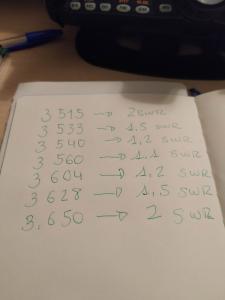 3 515 → 2 SWR
3 533 → 1,5 SWR
3 540 → 1,2 SWR
3 560 → 1.1 SWR
3 604 → 1,2 SWR
3 628 → 1,5 SWR
3.650 → 2 SWR